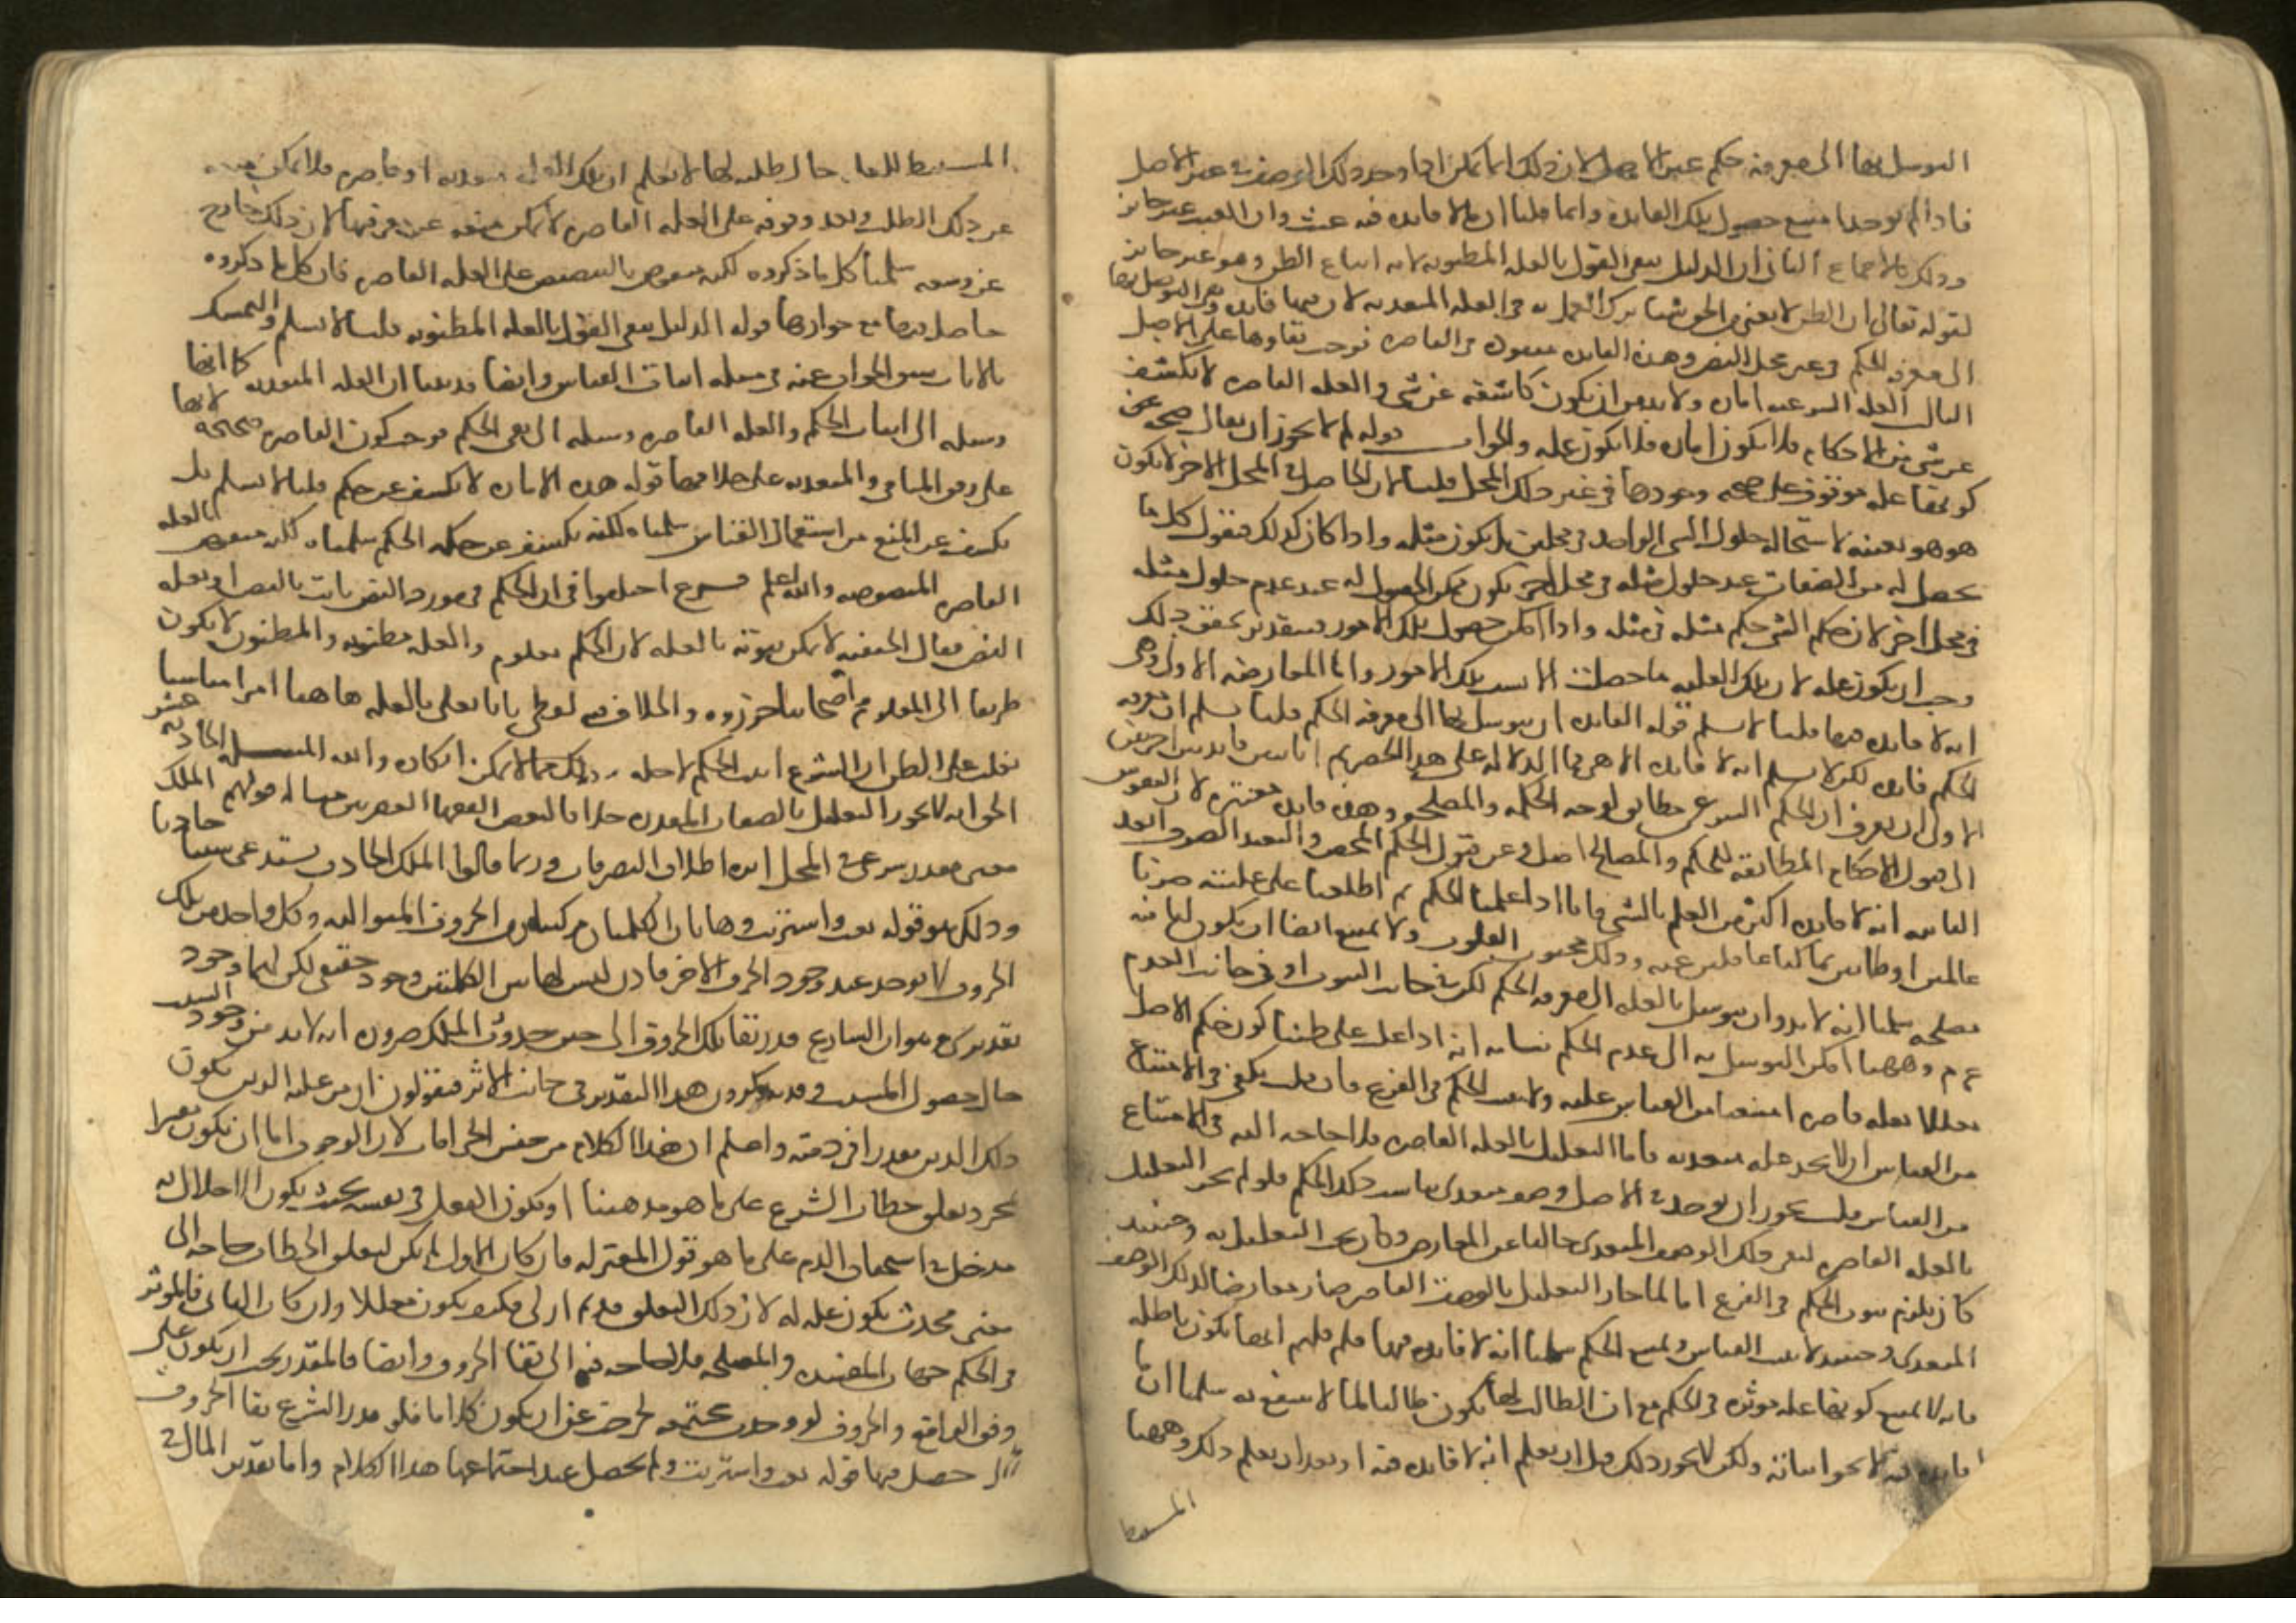 التوسل بها الى معرفة حكم غير الاصل لان ذلك انما يمكن اذا وجد ذلك الوصف في غير الاصل
فاذا لم يوجد امتنع حصول تلك الفايدة وانما قلنا ان ما لا فايدة فيه عبث وان العبث غير جايز
وذلك بالاجماع الثاني ان الدليل ينفي القول بالعلة المظنونة لانه اتباع الظن وهو غير جايز
لقوله تعالى ان الظن لا يغني من الحق شيئا ترك العمل به في العلة المتعدية لان فيها فايدة وهي التوصل بها
الى معرفة الحكم في غير محل النص وهذه الفايدة مفقودة في القاصرة فوجب بقاوها على الاصل
الثالث العلة الشرعية امارة ولا بد من ان تكون كاشفة عن شي والعلة القاصرة لا تكشف
عن شي من الاحكام فلا تكون امارة فلا تكون علة والجواب قوله لم لا يجوز ان يقال صحة
كونها علة موقوف على صحة وجودها في غير ذلك المحل قلنا لان الحاصل في المحل الاخر لا يكون
هو هو بعينه لاستحالة حلول الشي الواحد في محلين بل يكون مثله واذا كان كذلك فنقول كل ما
يحصل له من الصفات عند حلول مثله في محل اخر يكون ممكن الحصول له عند عدم حلول مثله
في محل اخر لان حكم الشي حكم مثله في مثله واذا امكن حصول تلك الامور فبتقدير تحقق ذلك
وجب ان يكون علة لان تلك العلية ما حصلت الا بسبب تلك الامور واما المعارضة الاولى وهي
انه لا فايدة فيها قلنا لا نسلم قوله الفايدة ان يتوسل بها الى معرفة الحكم قلنا نسلم ان معرفة
الحكم فايدة لكن لا نسلم انه لا فايدة الا هي فما الدلالة على هذا الحصر ثم انا نبين فايدتين اخريين
الاولى ان يعرف ان الحكم الشرعي مطابق لوجه الحكمة والمصلحة وهذه فايدة معتبرة لان النفوس
الى قبول الاحكام المطابقة للحكم والمصالح اميل وعن قبول الحكم المحض والتعبد الصرف ابعد
الثانية انه لا فايدة اكثر من العلم بالشي فانا اذا علمنا الحكم ثم اطلعنا على علته صرنا
عالمين او ظانين بما كنا غافلين عنه وذلك محبوب القلوب ولا يمتنع ايضا ان يكون لنا فيه
مصلحة سلمنا انه لا بد وان يتوسل بالعلة الى معرفة الحكم لكن في جانب الثبوت او في جانب العدم
ع م وههنا امكن التوسل به الى عدم الحكم بيانه انه اذا غلب على ظننا كون حكم الاصل
معللا بعلة قاصرة امتنعنا من القياس عليه ولا يثبت الحكم في الفرع فان قلت يكفي في الامتناع
من القياس ان لا نجد علة متعدية فاما التعليل بالعلة القاصرة فلا حاجة اليه في الامتناع
من القياس قلت يجوز ان يوجد في الاصل وصف متعدى يناسب ذلك الحكم فلو لم يجز التعليل
بالعلة القاصرة لبقي ذلك الوصف المتعدى خاليا عن المعارض وكان يجب التعليل به وحينئذ
كان يلزم ثبوت الحكم في الفرع اما لما جاز التعليل بالوصف القاصر صار معارضا لذلك الوصف
المتعدى وحينئذ لا يثبت القياس ويمتنع الحكم سلمنا انه لا فايدة فيها فلم قلتم انها تكون باطلة
فانه لا يمتنع كونها علة موثرة في الحكم مع ان الطالب لها يكون طالبا لما لا ينتفع به سلمنا ان ما لا
فايدة فيه لا يجوز اثباته ولكن لا يجوز ذلك قبل ان يعلم انه لا فايدة فيه او بعد ان يعلم ذلك وههنا
المستنبط
المستنبط للعلة حال طلبه لها لا يعلم ان تلك العلة متعدية او قاصرة فلا يمكن منعه
عن ذلك الطلب وبعد وقوفه على العلة القاصرة لا يمكن منعه عن معرفتها لان ذلك خارج
عن وسعه سلمنا كل ما ذكروه لكنه منقوض بالتنصيص على العلة القاصرة فان كل ما ذكروه
حاصل فيها مع جوازها قوله الدليل ينفي القول بالعلة المظنونة قلنا لا نسلم والتمسك
بالايات سبق الجواب عنه في مسلة اثبات القياس وايضا فدعوانا ان العلة المتعدية كما انها
وسيلة الى اثبات الحكم والعلة القاصرة وسيلة الى نفي الحكم فوجب كون القاصرة صحيحة لانها
على وفق المنافي والمتعدية على خلافها قوله هذه الامارة لا تكشف عن حكم قلنا لا نسلم بل
تكشف عن المنع من استعمال القياس سلمناه لكنه تكشف عن حكمة الحكم سلمناه لكن منقوض بالعلة
القاصرة المنصوصة والله اعلم فرع اختلفوا في ان الحكم في مورد النص ثابت بالنص او بعلة
النص فقال الحنفية لا يمكن ثبوته بالعلة لان الحكم معلوم والعلة مظنونة والمظنون لا يكون
طريقا الى المعلوم ثم اصحابنا جوزوه والخلاف فيه لفظي لانا نعني بالعلة هاهنا امرا مناسبا
يغلب على الظن ان الشرع اثبت الحكم لاجله وذلك مما لا يمكن انكاره والله المسلة الحادية عشر
الحق انه لا يجوز التعليل بالصفات المقدرة خلافا لبعض الفقها العصريين مثاله قولهم الملك
معنى مقدر شرعي في المحل اثره اطلاق التصرفات وربما قالوا الملك الحادث يستدعى سببا حادثا
وذلك هو قوله بعت واشتريت وهاتان الكلمتان مركبتان من الحروف المتوالية وكل واحد من تلك
الحروف لا يوجد عند وجود الحرف الاخر فاذن ليس لهاتين الكلمتين وجود حقيقي لكن لهما وجود
تقديرى وهو ان الشارع قدر بقا تلك الحروف الى حين حدوث الملك ضرورة انه لا بد من وجود السبب
حال حصول المسبب وقد يذكرون هذا التقدير في جانب الاثر فيقولون ان من عليه الدين يكون
ذلك الدين مقدرا في ذمته واعلم ان هذا الكلام من جنس الخرافات لان الوجوب اما ان يكون مفسرا
بمجرد تعلق خطاب الشرع على ما هو مذهبنا او يكون الفعل في نفسه بحيث يكون للاخلال به
مدخل في استحقاق الذم على ما هو قول المعتزلة فان كان الاول لم يكن لتعلق الخطاب حاجة الى
معنى محدث يكون علة له لان ذلك التعلق قديم ازلي فكيف يكون معللا وان كان الثاني فالموثر
في الحكم جهات المفسدة والمصلحة فلا حاجة فيه الى بقا الحروف وايضا فالمقدر يجب ان يكون على
وفق الواقع والحروف لو وجدت مجتمعة لخرجت عن ان يكون كلاما فلو قدر الشرع بقا الحروف
التي حصل فيها قوله بعت واشتريت لم يحصل عند اجتماعها هذا الكلام واما تقدير المال في